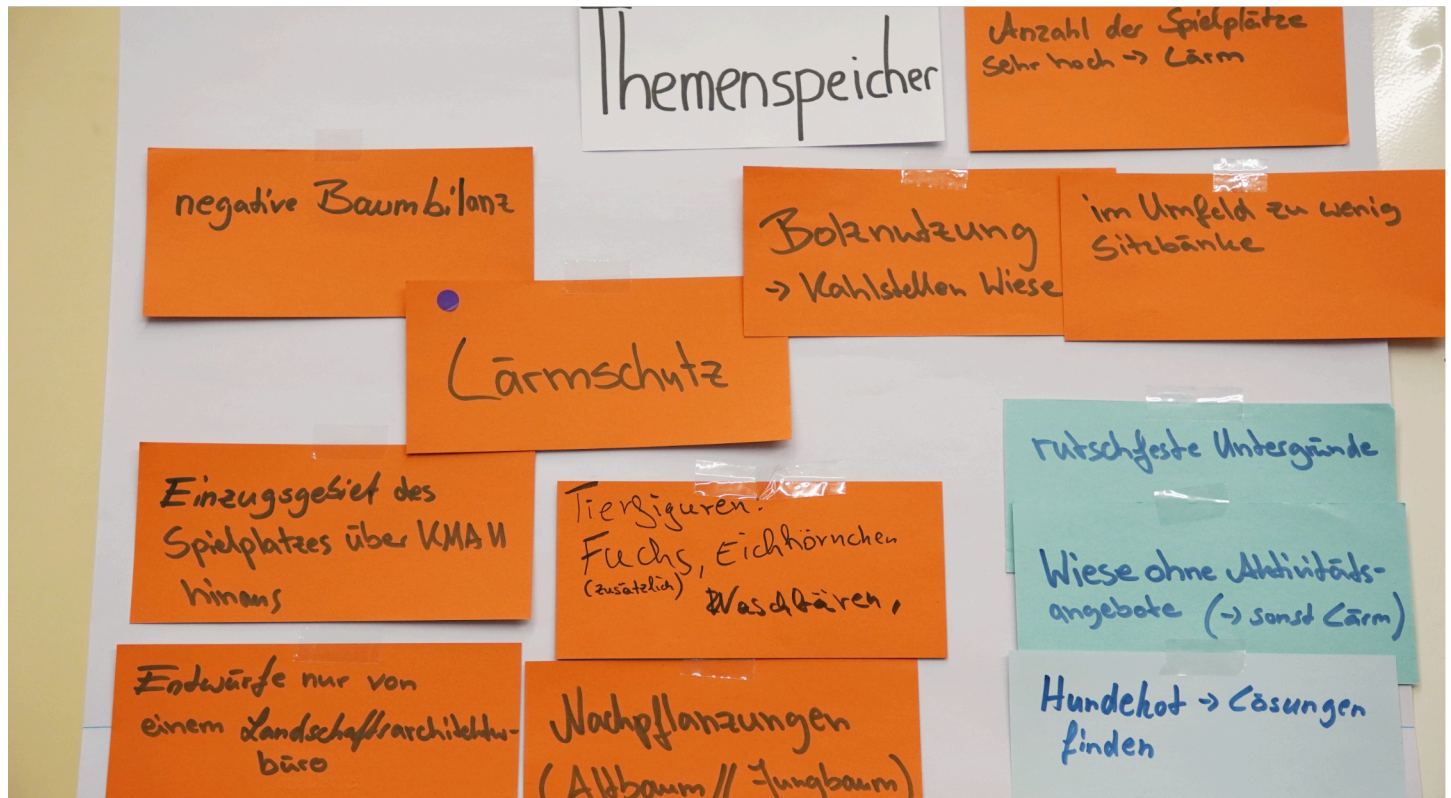 Themenspeicher
Anzahl der Spielplätze
sehr hoch -> Lärm
negative Baumbilanz
Bolznutzung
-> Kahlstellen Wiese
im Umfeld zu wenig
Sitzbänke
Lärmschutz
Einzugsgebiet des
Spielplatzes über KMAII
hinaus
Tierfiguren:
Fuchs, Eichhörnchen
(zusätzlich) Waschbären,
rutschfeste Untergründe
Wiese ohne Aktivitäts-
angebote (-> sonst Lärm)
Entwürfe nur von
einem Landschaftsarchitektur-
büro
Nachpflanzungen
(Altbaum // Jungbaum)
Hundekot -> Lösungen
finden